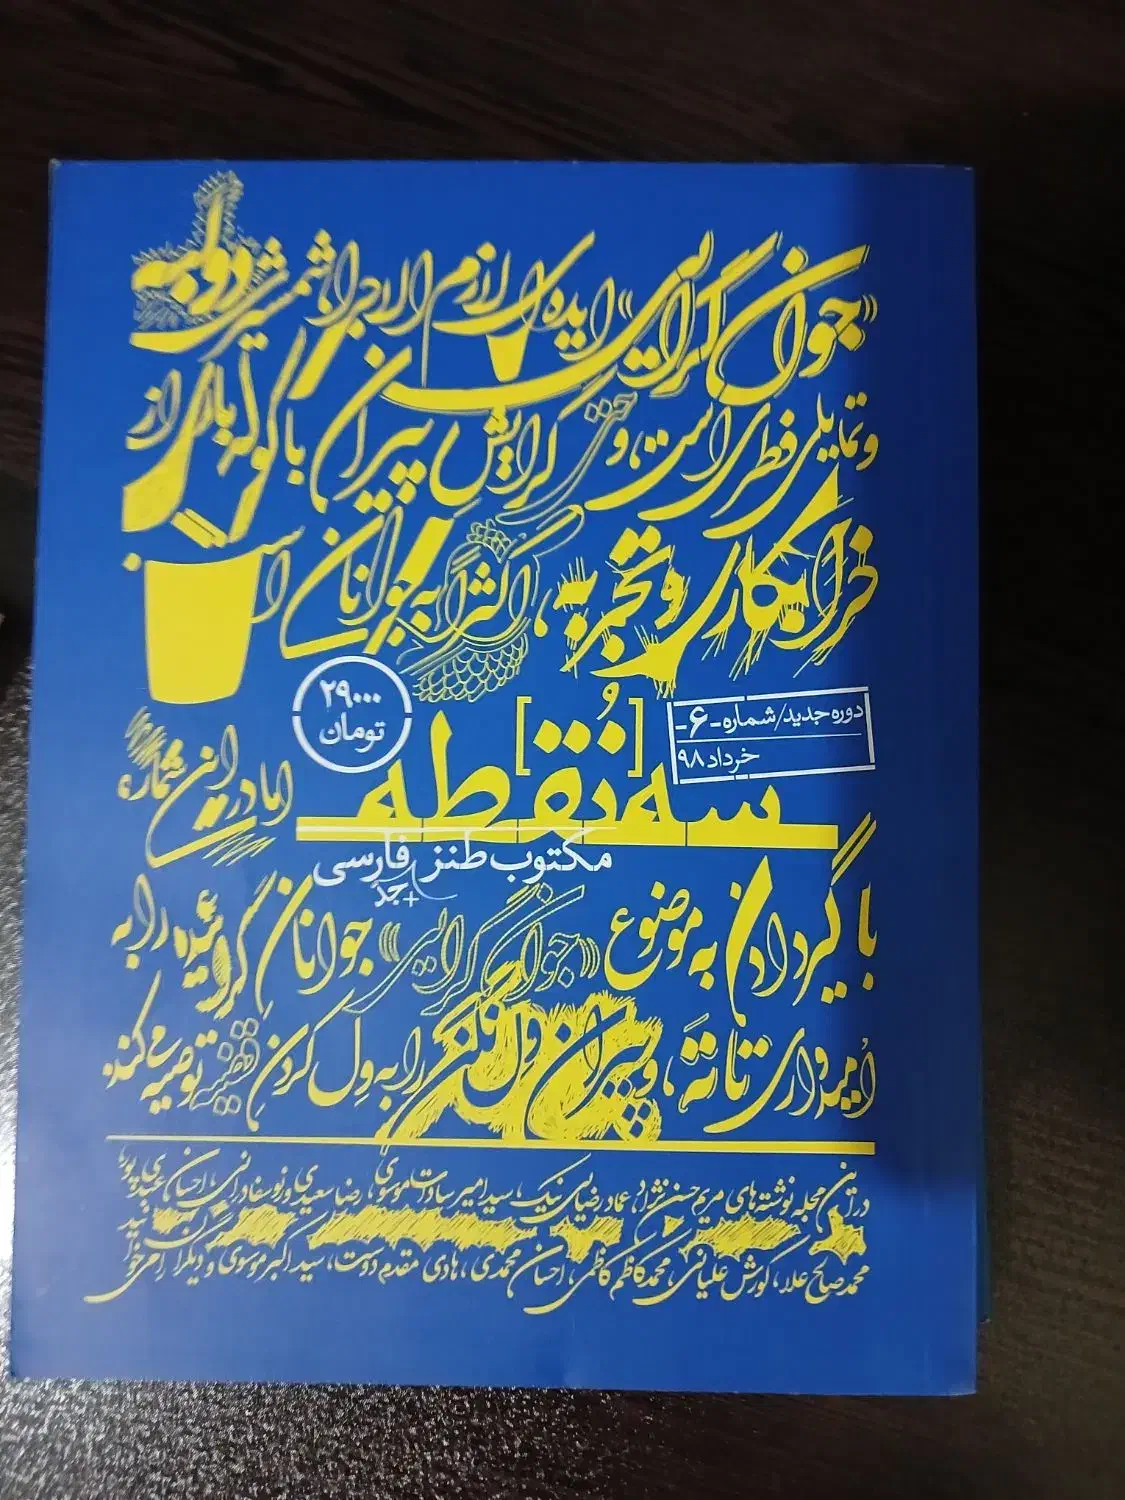 «جوان گرایی» ایده‌ای لازم الاجرا، شمشیری دولبه
و تمایلی فطری است، و حتی گرایش پیران با کوله باری از
خرابکاری و تجربه، اکثرا به جوانان است.
۲۹۰۰۰
تومان
دوره جدید/شماره-۶-
خرداد ۹۸
سه [نُقـ]طه
مکتوب طنز فارسی
+جدّ
اما در این شماره
با گیر دادن به موضوع «جوان گرایی» جوانان گرائیده را به
امیدواری تا تَه، و پیران ول نکن را به ول کردنِ قضیه توصیه می‌کند.
در این مجله نوشته‌های مریم حسن نژاد، عماد رضایی نیک، سید امیر سادات موسوی، رضا سعیدی و نوسفادرانی، احسان عبدی پور،
محمد صالح علا، کورش علیانی، محمد کاظم کاظمی، احسان محمدی، هادی مقدم دوست، سید اکبر موسوی و دیگران را می‌خوانید